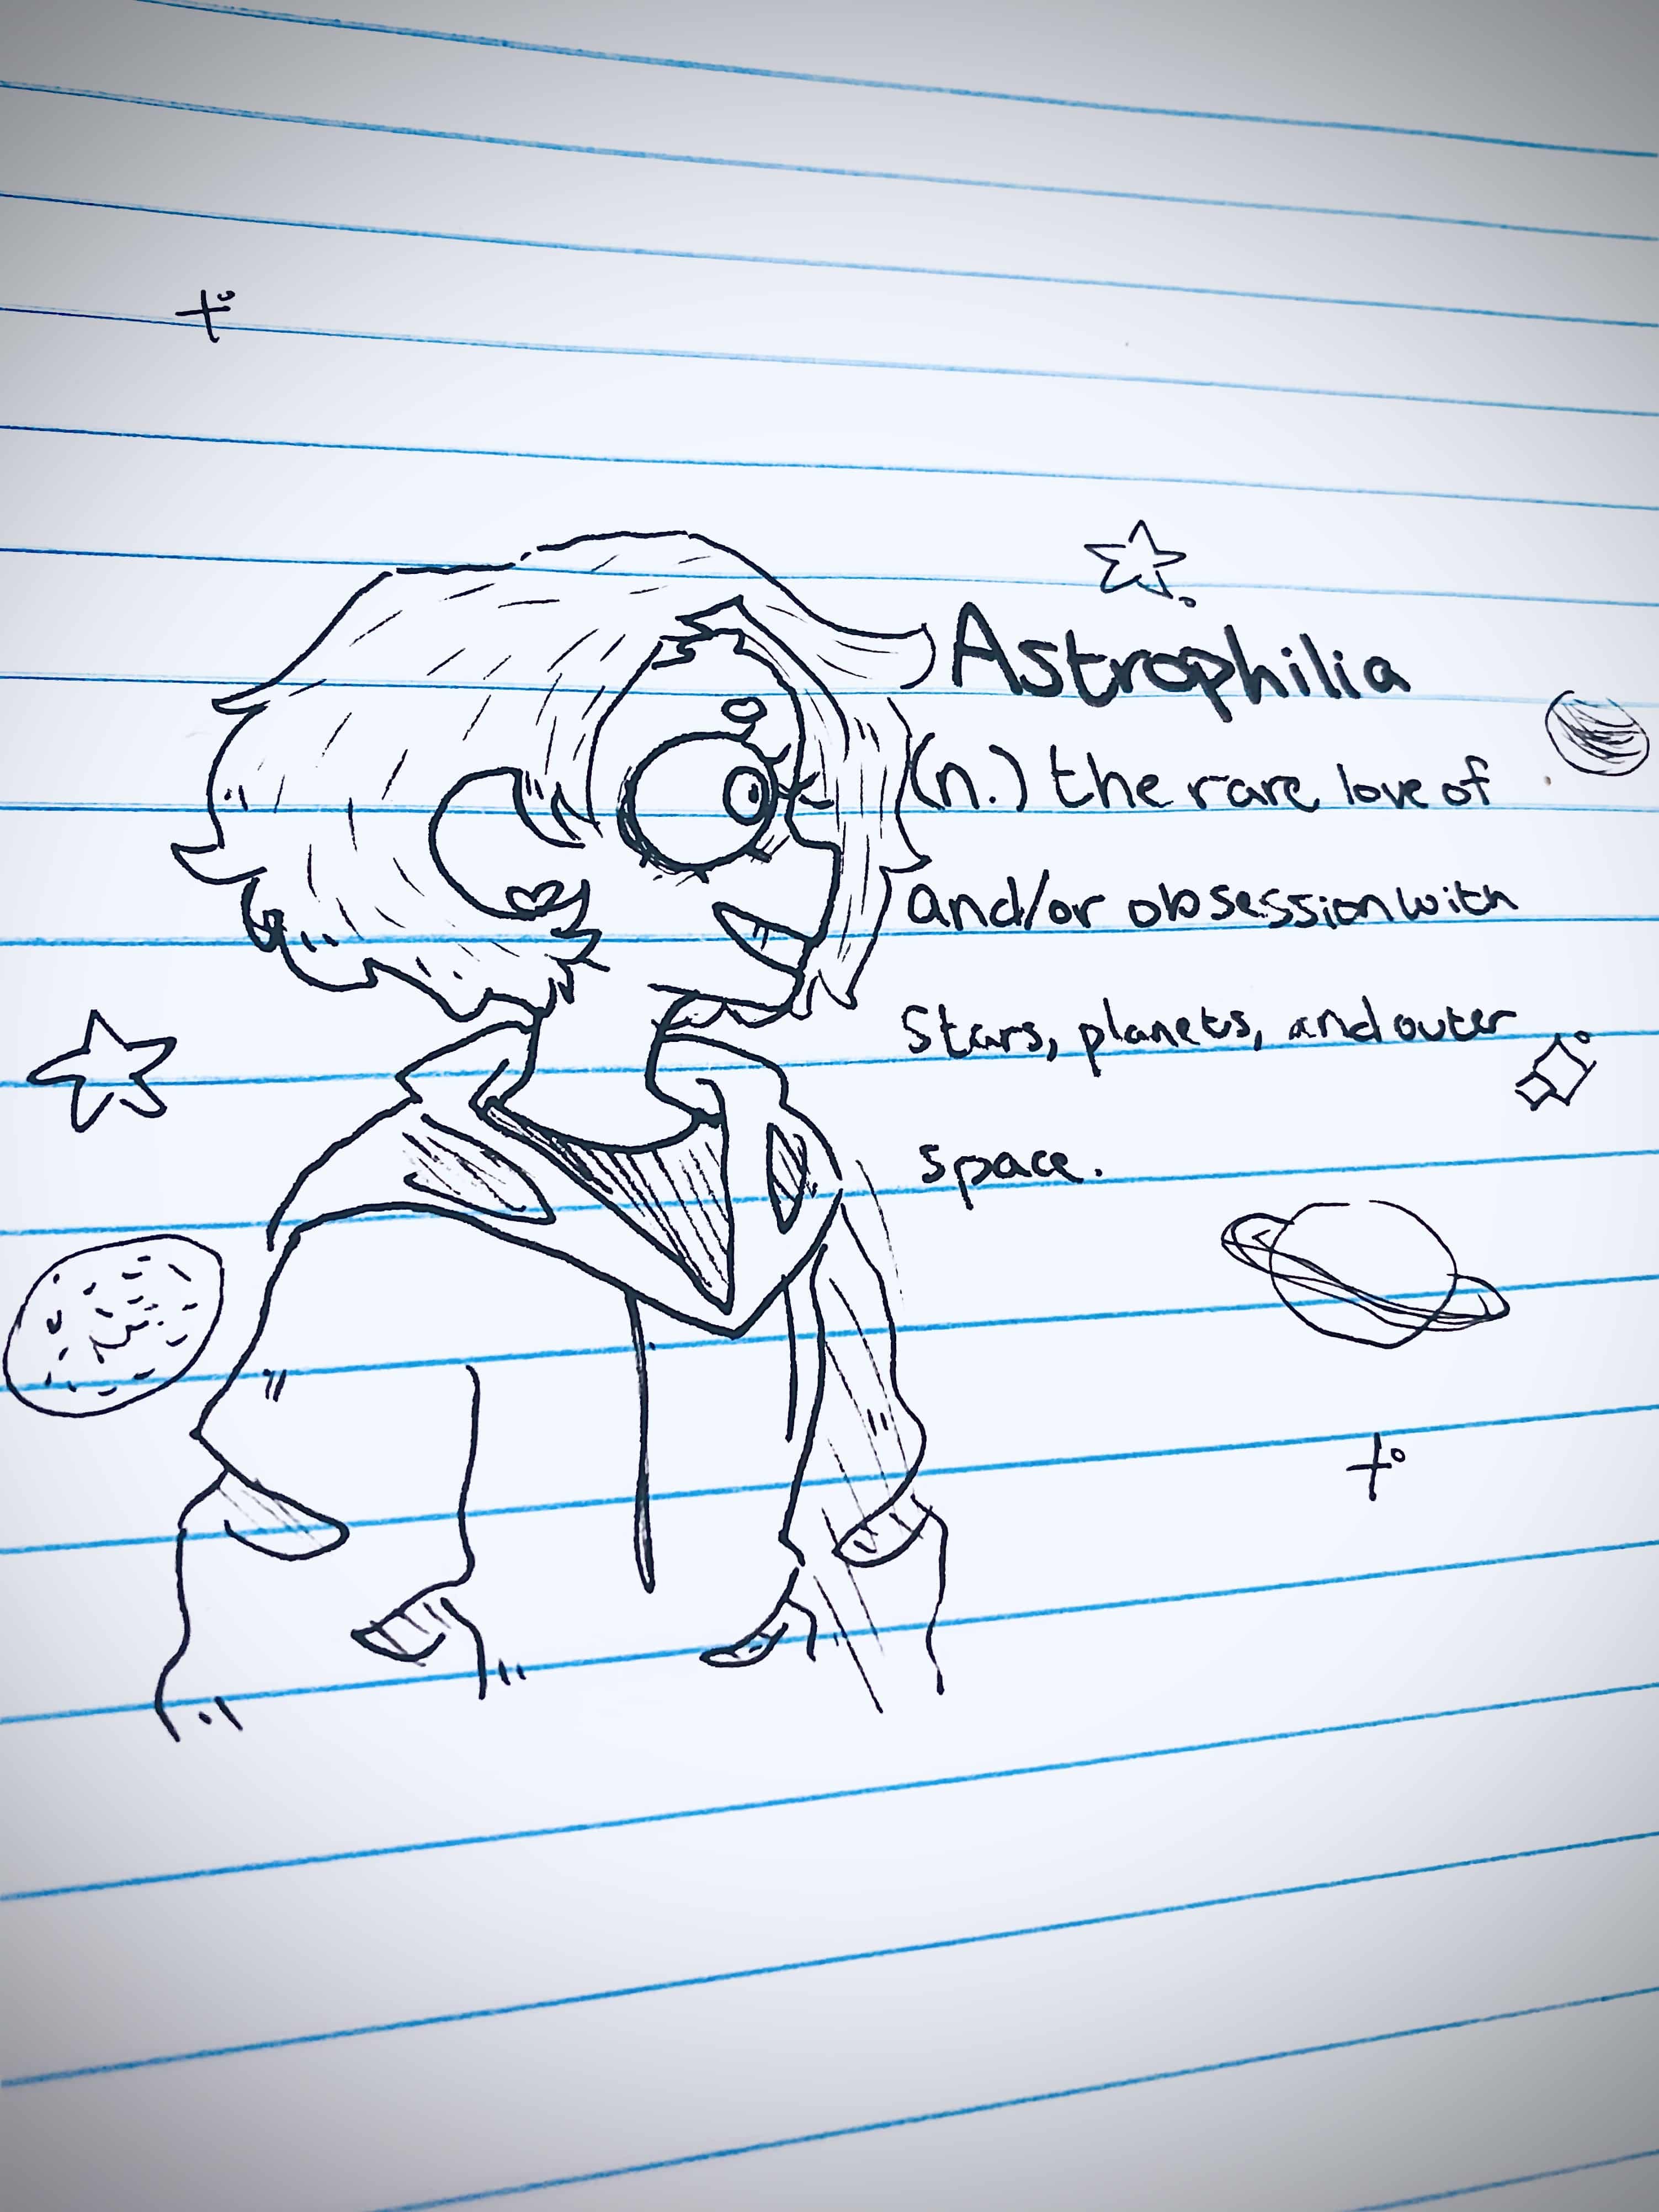 Astrophilia
(n.) the rare love of
and/or obsession with
Stars, planets, and outer
space.